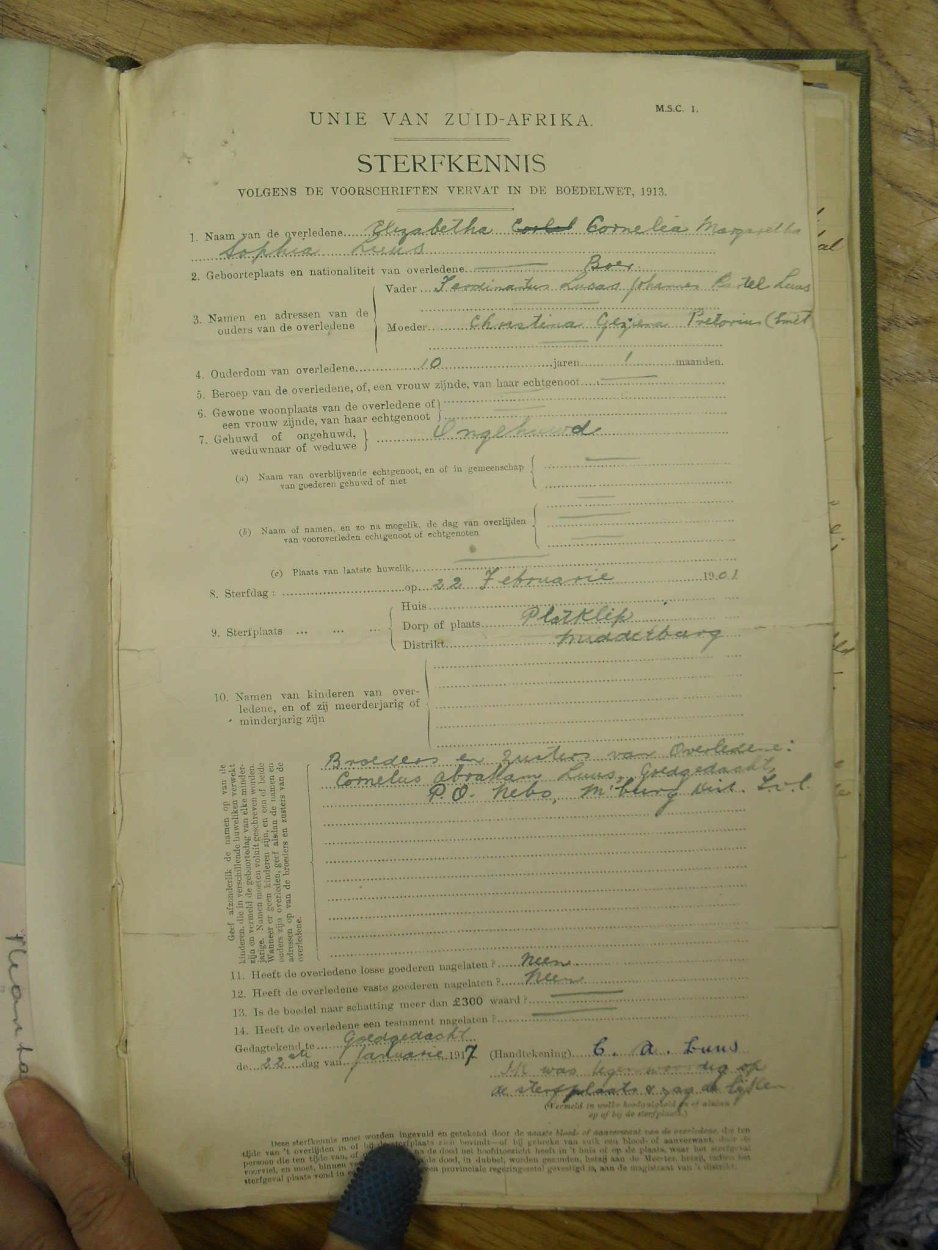 M.S.C. 1.
UNIE VAN ZUID-AFRIKA.
STERFKENNIS
VOLGENS DE VOORSCHRIFTEN VERVAT IN DE BOEDELWET, 1913.
1. Naam van de overledene Elizabetha Cornelia Margaretha
Sophia Luus
2. Geboorteplaats en nationaliteit van overledene Boer
3. Namen en adressen van de ouders van de overledene
Vader Ferdinantus Lucas Johannes Luus
Moeder Christina Pretorius (Smit
4. Ouderdom van overledene 10 jaren 1 maanden.
5. Beroep van de overledene, of, een vrouw zijnde, van haar echtgenoot
6. Gewone woonplaats van de overledene of
een vrouw zijnde, van haar echtgenoot
7. Gehuwd of ongehuwd, Ongehuwd
weduwnaar of weduwe
(a) Naam van overblijvende echtgenoot, en of in gemeenschap
van goederen gehuwd of niet
(b) Naam of namen, en zo na mogelik, de dag van overlijden
van vooroverleden echtgenoot of echtgenoten
(c) Plaats van laatste huwelik
8. Sterfdag: op 22 Februarie 1901
9. Sterfplaats ... ... ...
Huis
Dorp of plaats Platklip
Distrikt Middelburg
10. Namen van kinderen van over-
ledene, en of zij meerderjarig of
minderjarig zijn
Broeders en Zusters van Overledene:
Cornelus Abraham Luus, Goedgedacht
P.O. Nebo, M'burg Dist. Tvl.
Geef afzonderlik de namen op van de
kinderen, die in verschillende huweliken verwekt
zijn en vermeld de geboortedag van elke minder-
jarige. Namen moeten voluit geschreven worden.
Wanneer er geen kinderen zijn, en een of beide
ouders zijn overleden, geef alsdan de namen en
adressen op van de broeders en zusters van de
overledene.
11. Heeft de overledene losse goederen nagelaten? Neen
12. Heeft de overledene vaste goederen nagelaten? Neen
13. Is de boedel naar schatting meer dan £300 waard?
14. Heeft de overledene een testament nagelaten?
Gedagtekend te Goedgedacht
de 22ste dag van Januarie 1917
(Handtekening) C. A. Luus
Ik was tegenwoordig op
de sterfplaats & zag de lijken
(Vermeld in welke hoedanigheid en of
op of bij de sterfplaats.)
Deze sterfkennis moet worden ingevuld en getekend door de naaste bloed- of aanverwant van de overledene, die ten
tijde van 't overlijden in of bij de sterfplaats zich bevindt—of bij gebreke van zulk een bloed- of aanverwant, door de
persoon die ten tijde van, of na de dood het hoofdtoezicht heeft in 't huis of op de plaats, waar het sterfgeval
voorviel, en moet, binnen de dood, in dubbel, worden gezonden, hetzij aan de Meester, hetzij,
sterfgeval plaats vond in provinciale regeringszetel gevestigd is, aan de magistraat van 't distrikt.